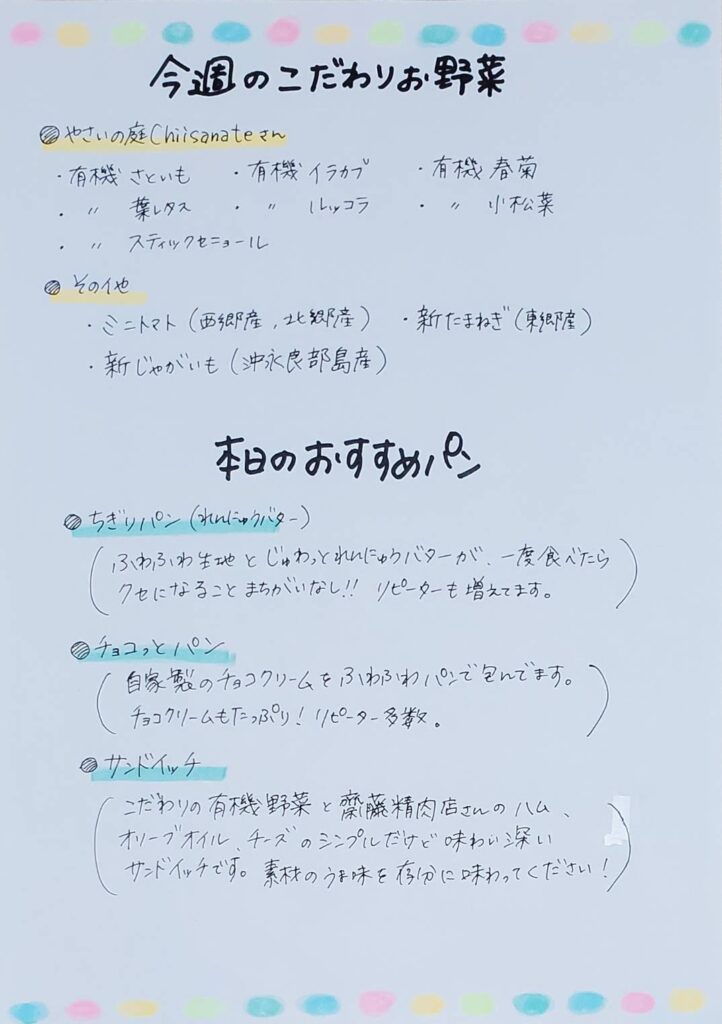 今週のこだわりお野菜
やさいの庭Chiisanateさん
・有機 さといも ・有機 イラカブ ・有機 春菊
・ 〃 葉レタス ・ 〃 ルッコラ ・ 〃 小松菜
・ 〃 スティックセニョール
その他
・ミニトマト(西郷産,北郷産) ・新たまねぎ(東郷産)
・新じゃがいも(沖永良部島産)
本日のおすすめパン
ちぎりパン(れんにゅうバター)
(ふわふわ生地とじゅわっとれんにゅうバターが、一度食べたら
クセになることまちがいなし!! リピーターも増えてます。)
チョコっとパン
(自家製のチョコクリームをふわふわパンで包んでます。
チョコクリームもたっぷり!リピーター多数。)
サンドイッチ
(こだわりの有機野菜と齋藤精肉店さんのハム、
オリーブオイル、チーズのシンプルだけど味わい深い
サンドイッチです。素材のうま味を存分に味わってください!)